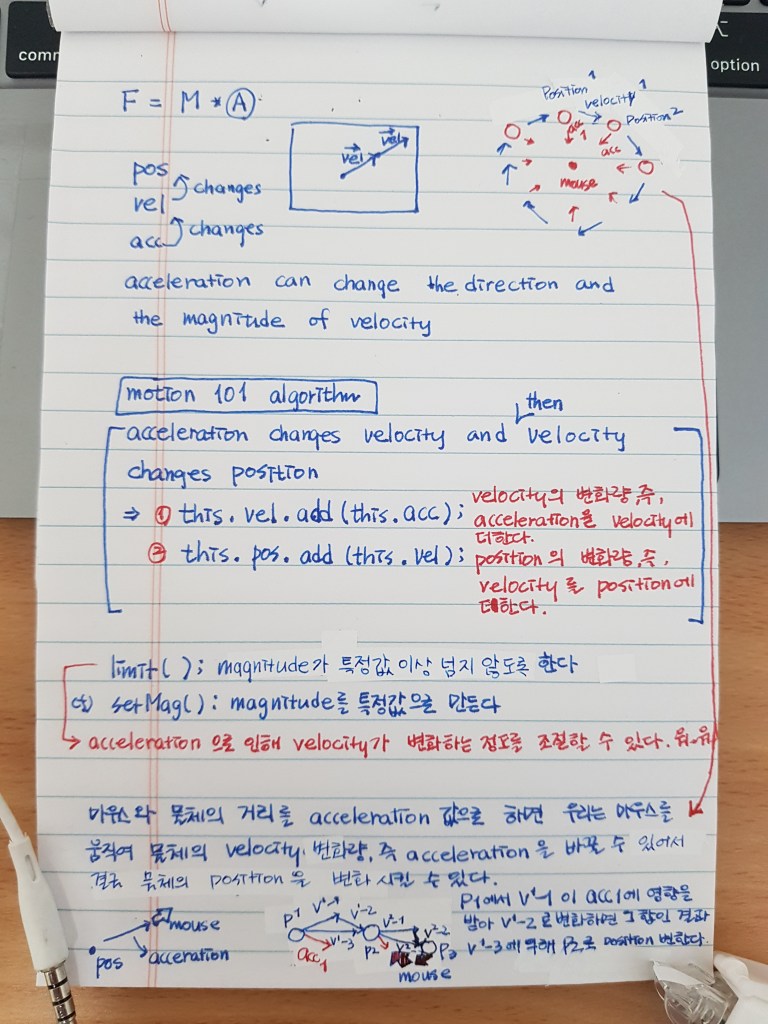 comm
option
F = M * A
Position 1
velocity 1
Position 2
acc 1
acc
mouse
vel
vel
pos
changes
vel
changes
acc
acceleration can change the direction and
the magnitude of velocity
motion 101 algorithm
then
acceleration changes velocity and velocity
changes position
⇒ ① this.vel.add(this.acc); velocity의 변화량, 즉,
acceleration을 velocity에
더한다.
② this.pos.add(this.vel); position의 변화량, 즉,
velocity를 position에
더한다.
limit(); magnitude가 특정값 이상 넘지 않도록 한다
setMag(): magnitude를 특정값으로 만든다
→ acceleration으로 인해 velocity가 변화하는 정도를 조절할 수 있다.
마우스와 물체의 거리를 acceleration 값으로 하면 우리는 마우스를
움직여 물체의 velocity 변화량, 즉 acceleration을 바꿀 수 있어서
결국 물체의 position을 변화 시킬 수 있다.
mouse
pos
acceration
P1
V'-1
V'-2
V'-3
acc1
P2
V²-1
V²-2
P3
mouse
P1에서 V'-1이 acc1에 영향을
받아 V'-2로 변화하면 그 합인 결과
V'-3에 의해 P2로 position 변한다.